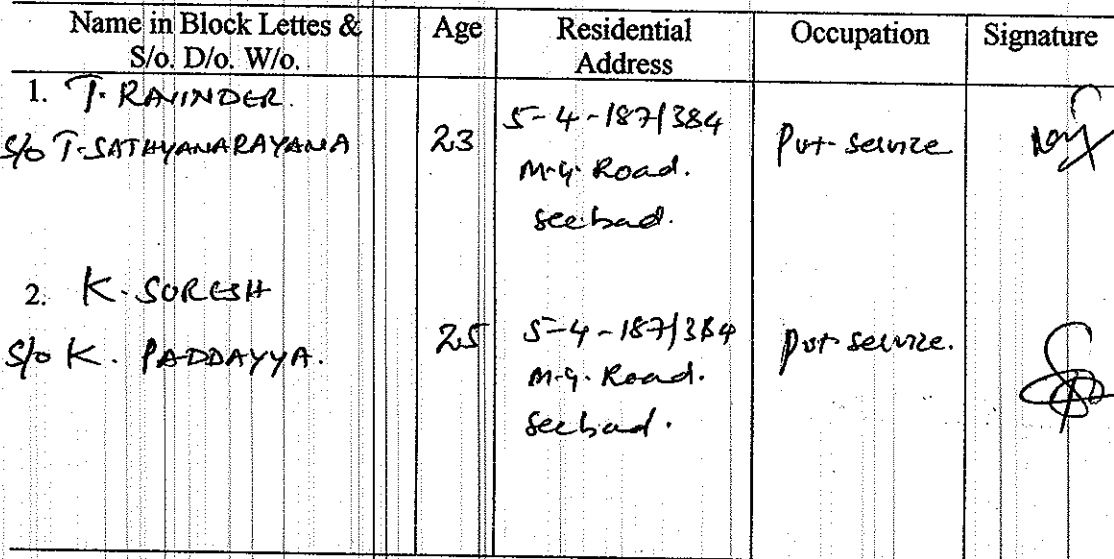 Name in Block Lettes & S/o. D/o. W/o.
Age
Residential Address
Occupation
Signature
1. T. RAVINDER.
S/o T. SATHYANARAYANA
23
5-4-187/3&4
M.G. Road.
Secbad.
Pvt. Service
2. K. SURESH
S/o K. PADDAYYA.
25
5-4-187/3&4
M.G. Road.
Secbad.
Pvt. Service.